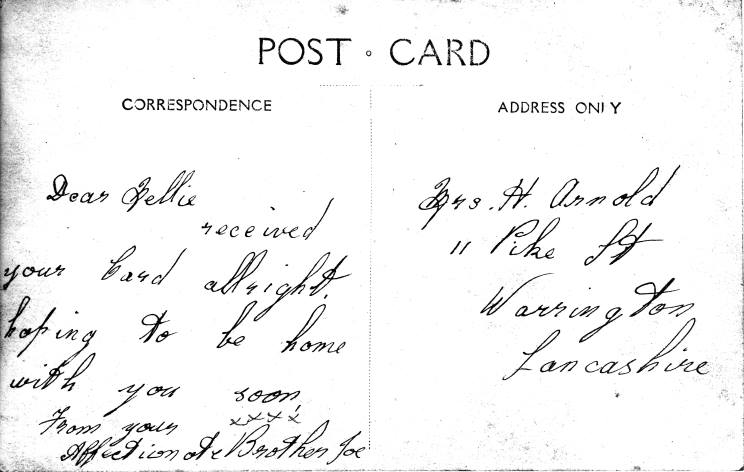 POST CARD
CORRESPONDENCE
ADDRESS ONLY
Dear Nellie
received
your Card allright.
hoping to be home
with you soon,
xxxx
From your
Affectionate Brother Joe
Mrs. H. Arnold
11 Pike St
Warrington
Lancashire